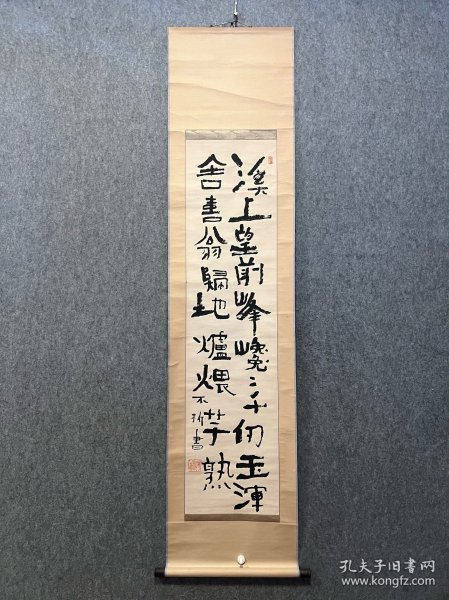 溪上望前峰巉〻千仞玉渾
舍喜翁歸地爐煨芋熟
不折書
孔夫子旧书网
www.kongfz.com